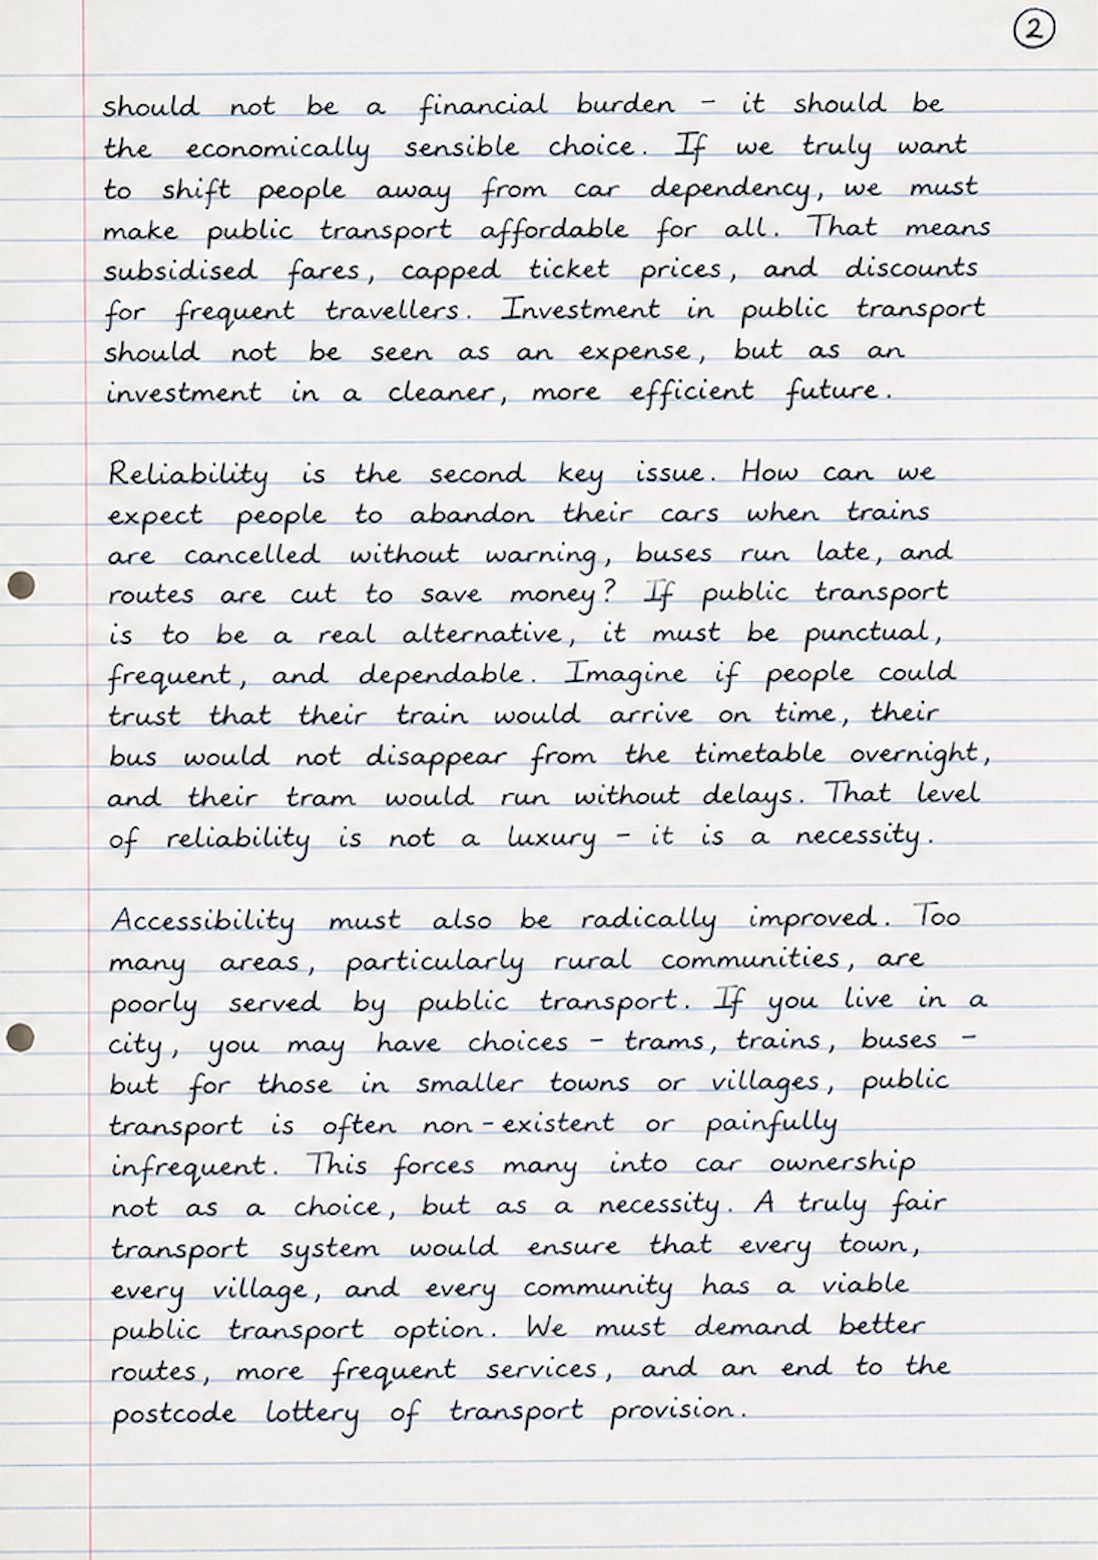 2
should not be a financial burden - it should be
the economically sensible choice. If we truly want
to shift people away from car dependency, we must
make public transport affordable for all. That means
subsidised fares, capped ticket prices, and discounts
for frequent travellers. Investment in public transport
should not be seen as an expense, but as an
investment in a cleaner, more efficient future.
Reliability is the second key issue. How can we
expect people to abandon their cars when trains
are cancelled without warning, buses run late, and
routes are cut to save money? If public transport
is to be a real alternative, it must be punctual,
frequent, and dependable. Imagine if people could
trust that their train would arrive on time, their
bus would not disappear from the timetable overnight,
and their tram would run without delays. That level
of reliability is not a luxury - it is a necessity.
Accessibility must also be radically improved. Too
many areas, particularly rural communities, are
poorly served by public transport. If you live in a
city, you may have choices - trams, trains, buses -
but for those in smaller towns or villages, public
transport is often non-existent or painfully
infrequent. This forces many into car ownership
not as a choice, but as a necessity. A truly fair
transport system would ensure that every town,
every village, and every community has a viable
public transport option. We must demand better
routes, more frequent services, and an end to the
postcode lottery of transport provision.